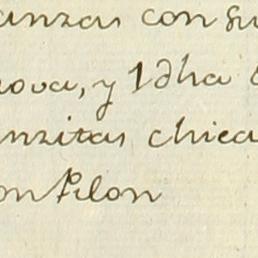 anzas con su
rova, y 1 dha
nzitas chica
on filon